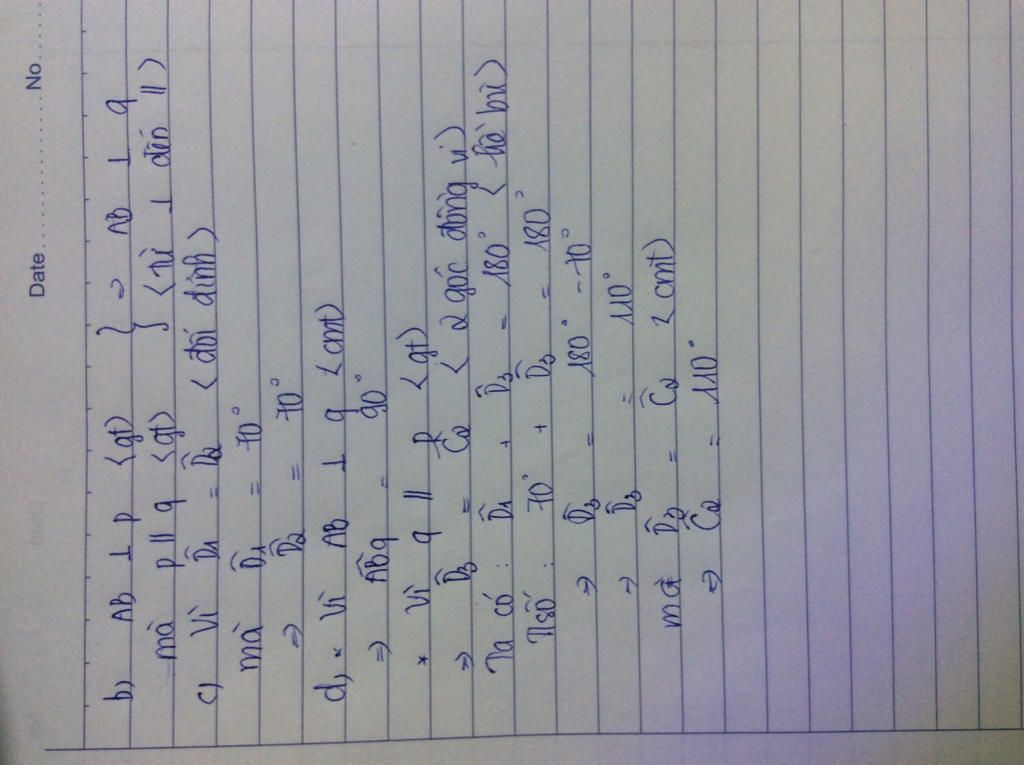 Date ........... No. ....
b) AB ⊥ p <gt) } ⇒ AB ⊥ q
mà p // q <gt) } <từ ⊥ đến //)
c) Vì D̂1 = D̂2 < đối đỉnh)
mà D̂1 = 70°
⇒ D̂2 = 70°
d, * Vì AB ⊥ q <cmt)
⇒ ABq = 90°
* Vì q // p <gt)
⇒ D̂3 = Ĉ2 < 2 góc đồng vị)
Ta có : D̂1 + D̂3 = 180° < kề bù)
T|số : 70° + D̂3 = 180°
⇒ D̂3 = 180° - 70°
⇒ D̂3 = 110°
mà D̂3 = Ĉ2 < cmt)
⇒ Ĉ2 = 110°